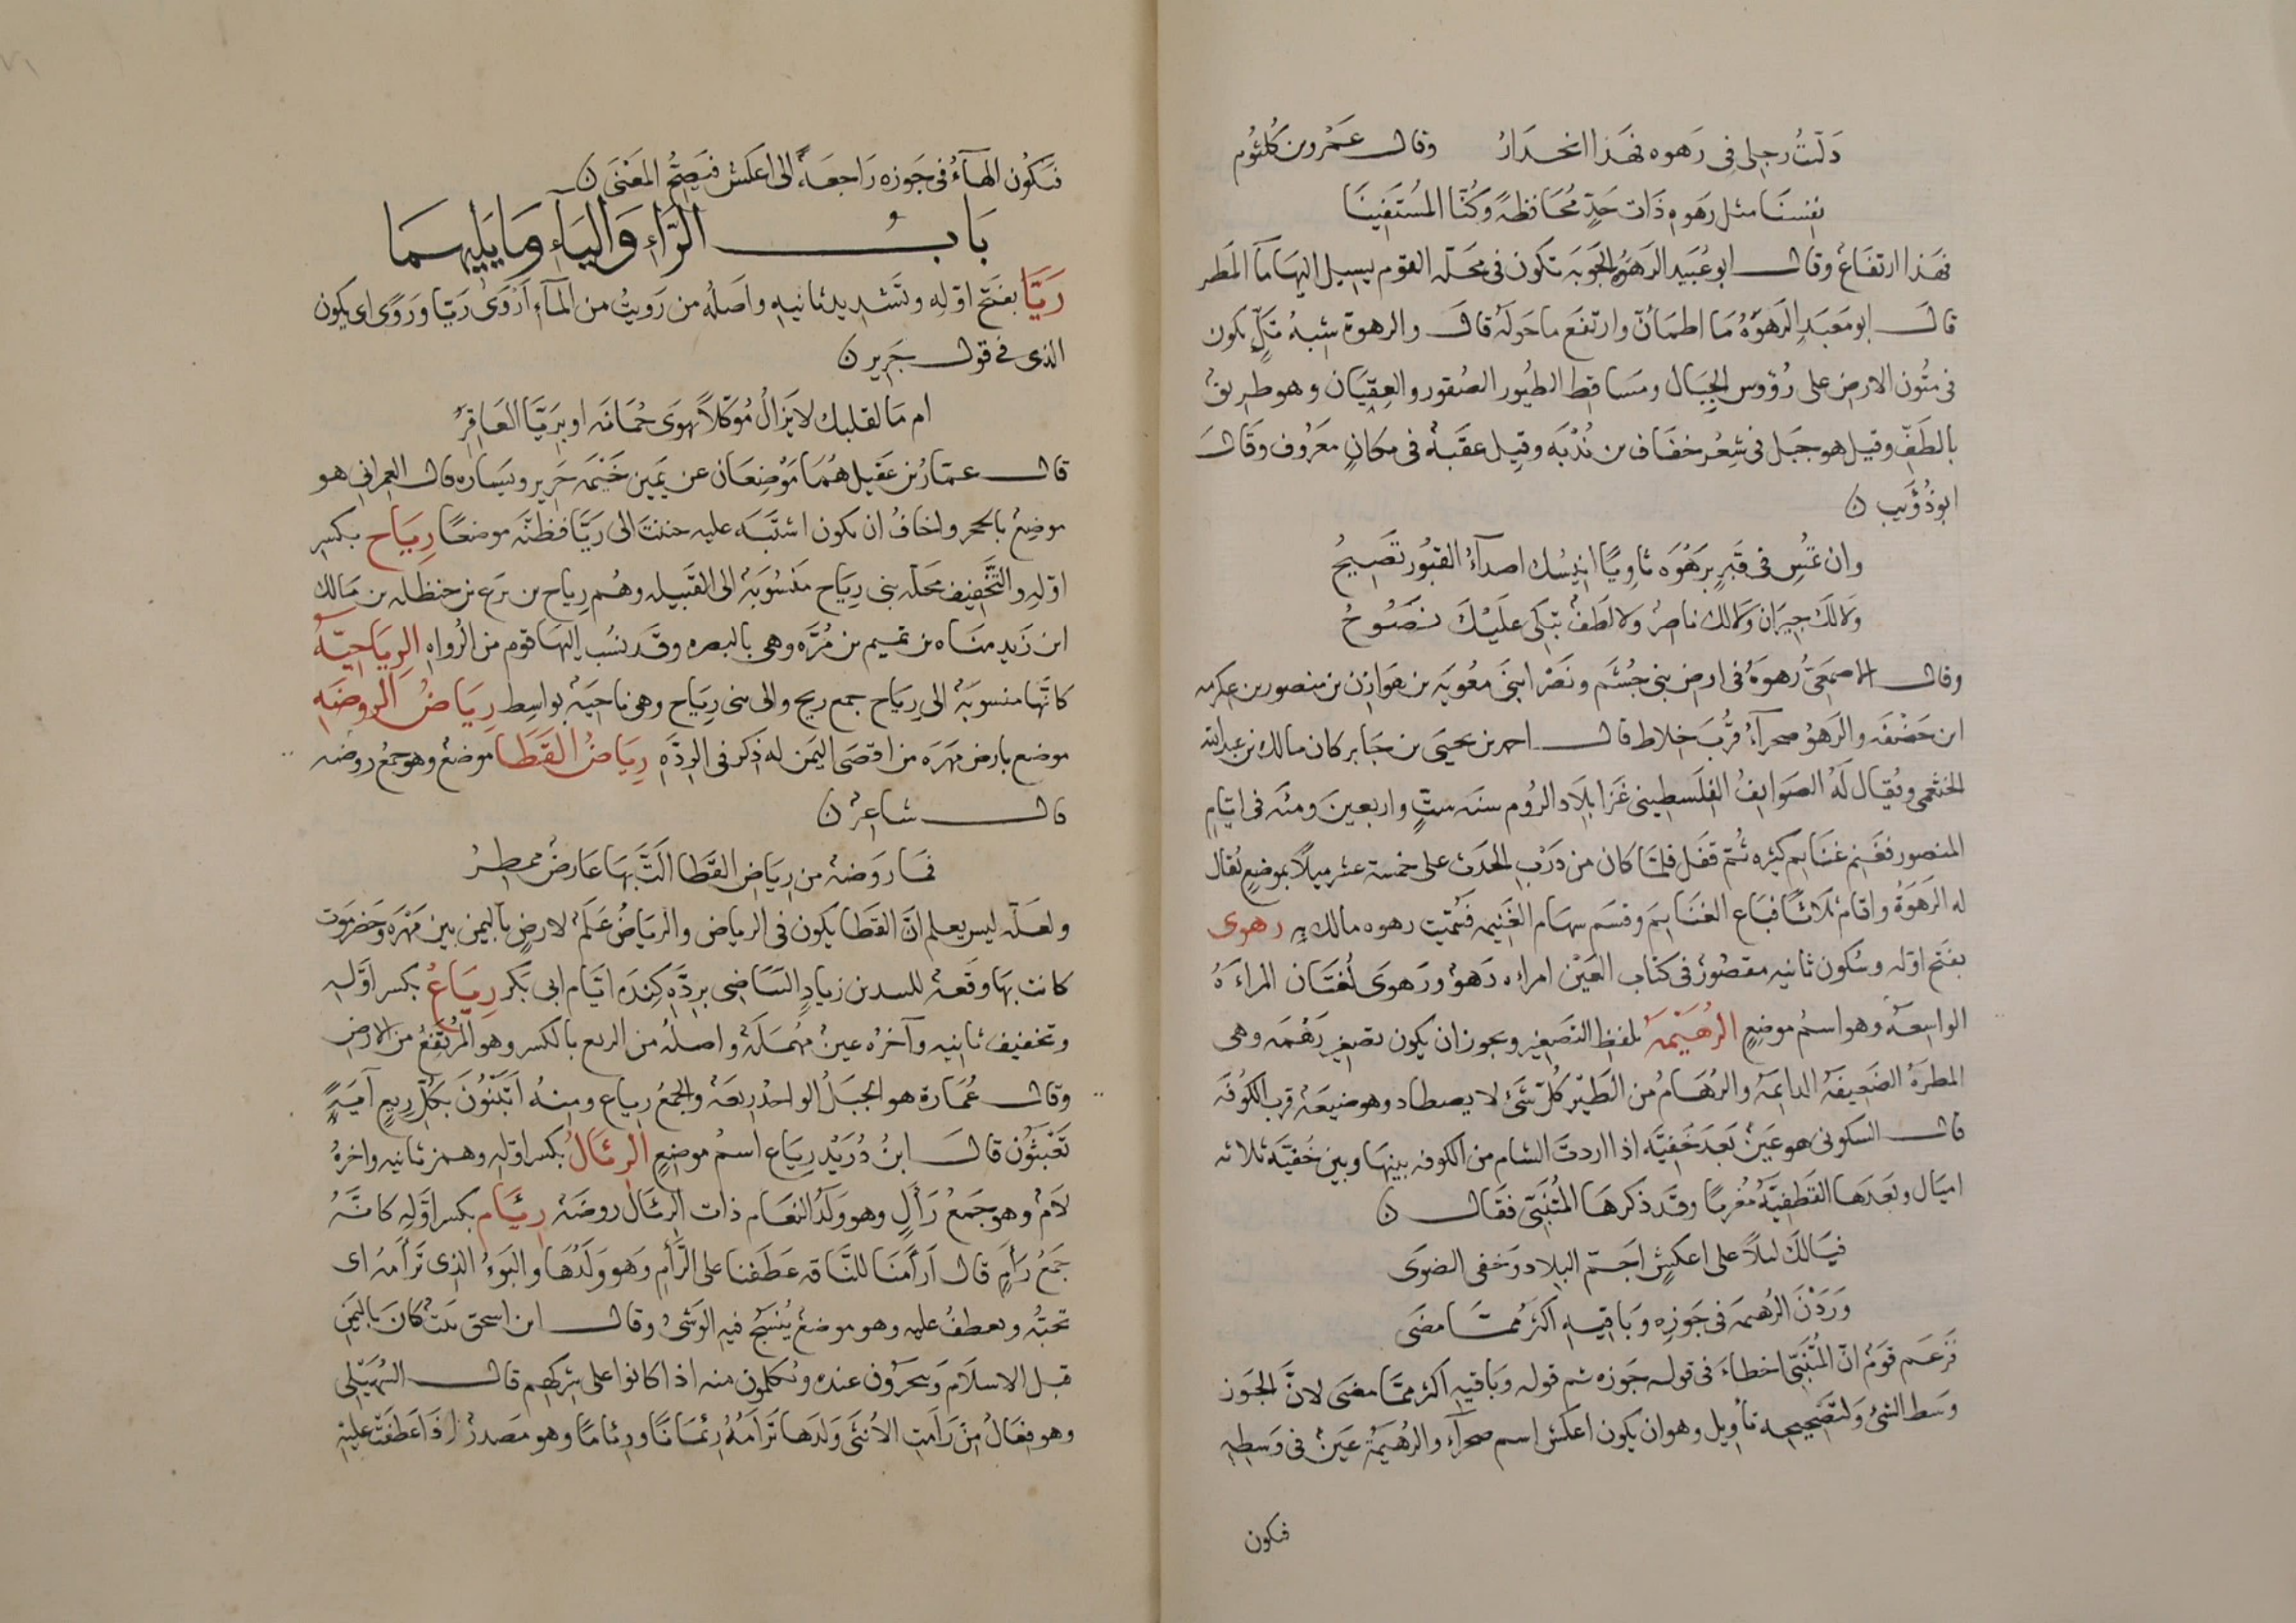 دَلّتُ رجلي في رَهوه فهَذا انحدَارٌ وقال عَمْرو بن كُلثُوم
نصَبنَا مثل رَهوةِ ذَات حَدٍّ مُحَافظةً وَكُنّا المُستَفِينَا
فهَذا ارتفَاعٌ وقال ابو عُبَيد الرَهوُ الجَوبَة تكون في محَلّه القوم يسِيل اليهَا مآ المَطر
قالَ ابو مَعبَدِ الرَهوَةُ مَا اطمَأنّ وارتفَع ما حَولَهُ قالَ والرهوة شِبهُ تَلٍّ يكون
في متُون الارض على رُؤوس الجِبَال ومسَاقِط الطيُور الصُقور والعِقبَان وهو طريق
بالطَفّ وقيل هو جبَل في شِعْر خفَاف بن نُدْبَه وقيل عقَبة في مكانٍ معرُوف وَقَالَ
ابو ذُؤَيب ن
وان تمُسِ في قَبرٍ برَهْوَه ثاويًا انيسُك اصدآءُ القبُور تصَيحُ
وَلا لكَ جيرَان وَلا لك ناصرٌ ولا لَطَفٌ تبَكي عَليْكَ نصَوحُ
وقال الاصمَعيُّ رُهوَةُ في ارض بني جُشَم ونصْر ابنَى معُويَه بن هوَازن بن منصور بن عكرمه
ابن خَصْفَه والرَهوُ صحرآءُ قُربَ خلاط قال احمد بن يحيىَ بن جَابر كان مالك بن عبد الله
الخثعمي ويُقَال لَهُ الصَوايفُ الفِلَسطيني غَزا بلاد الرُوم سنَه ستٍّ واربعينَ ومئَه في ايّام
المنصور فغَنم غنَايم كثيره ثُمّ قفَل فلمّا كان من دَرْبِ الحدَث على خمسَة عشر ميلاً بموضعٍ يُقال
له الرَهوَةُ واقام ثلاثًا فبَاع الغنَايمَ وقسَم سهَام الغَنيمه فسُمّيَت رهوه مالك به رهوى
بفتَح اوّله وسُكون ثانيه مقصُورٌ في كتَاب العَيْن امراه رَهوٌ ورَهوَى لُغتَان المراءَةُ
الواسِعَةُ وهو اسمُ موضعٍ الرُهَيْمَهُ بلفظ التصَغِير ويجوز ان يكون تصغِير رَهْمَه وهي
المطرَةُ الضَعيفَة الدايمَة والرُهَامُ من الطَيْر كُلّ شئٍ لا يصطاد وهو ضيعَة قرب الكُوفَه
قال السكوني هو عَينٌ بَعدَ خَفِيَّه اذا اردتَ الشام من الكوفه بينهَا وبين خَفيَّة ثلاثه
اميَال وبَعدَهَا القَطيفِيَّةُ مغربًا وقَد ذكرهَا المُتنَبّي فقَال ن
فيَالكَ ليلاً على اعكشٍ اجَمّ البلاد وَخفي الصُوَى
وَرَدْنَ الرُهيمَه في جَوزه وَبَاقيهِ اكثَرُ ممّا مضَى
فزَعَم قَومٌ انّ المُتنَبّي اخطاءَ في قوله جَوزه ثم قوله وَبَاقيه اكثر ممّا مضَى لانّ الجَوز
وسَط الشئ وَلتَصَحيحه تأويل وهو ان يكون اعكش اسم صحرآء والرُهيَمة عَينٌ في وَسطِه
فتكون
فتَكُون الهآءُ في جَوزه رَاجعَةً الى اعكَش فيَصحُّ المَعْنَى ن
بَابُ الرَّاءِ وَاليَآءِ وَمَا يَليهِمَا
رَيَّا بفتَح اوّله وتَشديد ثانيه واصَلهُ من رَويتُ من المآءِ اَرْوَى رَيّا وَرَوًى اى يكون
الذى في قول جَرير ن
ام مَا لقلبك لا يَزالُ مُوَكّلاً بهوَى جُمَانَه او بَريَّا العَاقِرْ
قال عمَارُ بن عقَيل هُمَا مَوْضِعَان عن يَمين خَيْمَه جَرير ويَسَاره قال العمراني هو
موضعٌ بالحجر واخافُ ان يكون اشتَبَه عليه حننتَ الى رَيَّا فظنّه موضعًا رِيَاح بكسر
اوّله والتَّخفيف محَلّه بني رِيَاح مَنسُوبَة الى القبَيله وهُم رِياح بن يَربوع بن حنظله بن مَالك
ابن زَيد مناه بن تميم بن مُرَّه وهي بالبصره وقَد نسُب اليهَا قوم من الرُواهِ الرِيَاحِيّةُ
كانّها منسوبَةٌ الى رِيَاح جمع ريح والى بني رِيَاح وهي ناحيَةٌ بواسِط رِيَاضُ الرَوضَه
موضع بارض مهرَه من اقصَى اليَمن له ذِكر في الردَّه رِيَاضُ القَطَا موضعٌ وهو جمع روضه
قال شاعِرٌ ن
فمَا رَوضةٌ من رِيَاض القَطَا الَثَّ بهَا عَارضٌ ممطِرُ
ولعَلّه ليس بعلم انّ القَطا يكون في الرياض والرياضُ عَلَمٌ لارضٍ باليمن بين مَهْرَه وَحَضرَموت
كانت بهَا وَقعةٌ للبيد بن زيادٍ البَيَاضِي بردَّهِ كِندَه ايّام ابى بَكر رِيَاعُ بكسر اوَّله
وتخفيف ثانيه وآخرُه عينٌ مُهمَلَةٌ واصلهُ من الريع بالكسر وهو المُرتفِعُ من الارض
وقال عُمَارة هو الجبَلُ الواحدُ رِيعَةٌ والجمعُ رياع ومنهُ أتَبْنُونَ بكُلّ رِيعٍ آيَةً
تَعْبثُون قالَ ابنُ دُرَيْد رِيَاع اسمُ موضعٍ الرِئَالُ بكسر اوّله وهمز ثانيه واخرهُ
لامٌ وهو جَمعُ رَألٍ وهو وَلَدُ النعَام ذات الرئَال روضَةٌ رِئَام بكسر اوَّله كانَّهُ
جَمعُ رَأمٍ قال اَرأَمنَا للنَاقه عَطَفنا على الرَأمِ وَهو وَلَدُهَا والبَوُّ الذي تَرأمُهُ اى
تحبّهُ وتعطفُ عليه وهو موضعٌ يُنسَجُ فيهِ الوَشيُ وقال ابن اسحق بَيتٌ كانَ باليَمَن
قبل الاسلَام وَينحرُون عنده وتُكلمون منه اذا كانوا على شِركهِم قال السُهَيْلي
وهو فِعَالٌ مِنْ رَأمَتِ الأُنثَى وَلدَها تَرْأمُهُ رئمَانًا ورِئامًا وهو مَصدرٌ اذا عَطفَت عليهِ